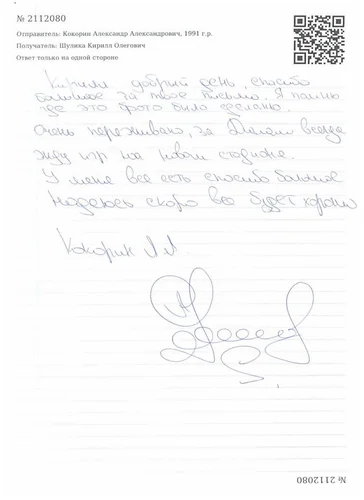 № 2112080
Отправитель: Кокорин Александр Александрович, 1991 г.р.
Получатель: Шулика Кирилл Олегович
Ответ только на одной стороне
Кирилл добрый день, спасибо
большое за твоё письмо. Я помню
где это фото было сделано.
Очень переживаю, за Динамо всегда
жду игр на новом стадионе.
У меня все есть спасибо большое
Надеюсь скоро все будет хорошо
Кокорин А.А.
№ 2112080